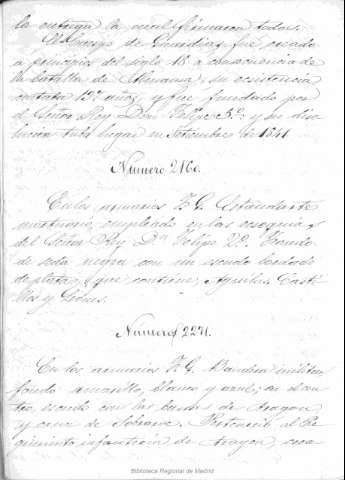 la entrega la cual firmaron todos.
El Cuerpo de Guardias fué creado
a principios del siglo 18 a consecuencia de
la batalla de Almansa, su existencia
contaba 137 años y fue fundado por
el Señor Rey Don Felipe 5º: y su diso-
lución tubo lugar en Setiembre de 1841
Numero 2160.
En los armarios F. G. Estandarte
mortuorio, empleado en las exequias
del Señor Rey Dn Felipe Vº. Fondo
de seda negra con un escudo bordado
de plata, que contiene, Aguilas, Casti-
llos y Leones.
Numero 2271.
En los armarios F. G. Bandera militar
fondo amarillo, blanco y azul; en el cen-
tro, escudo con las barras de Aragon
y cruz de Sobrarve. Perteneció al Re-
gimiento infantería de Aragon,
Biblioteca Regional de Madrid